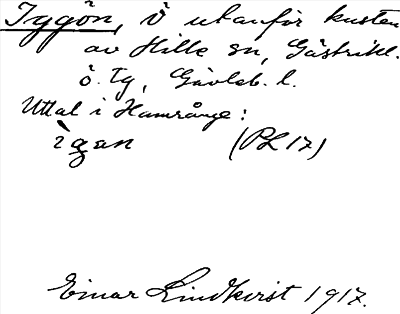 Iggön, ö utanför kusten
av Hille sn, Gästrikl.
ö. Tg, Gävleb. l.
Uttal i Hamrånge:
ìgan (PL 17)
Einar Lindkvist 1917.